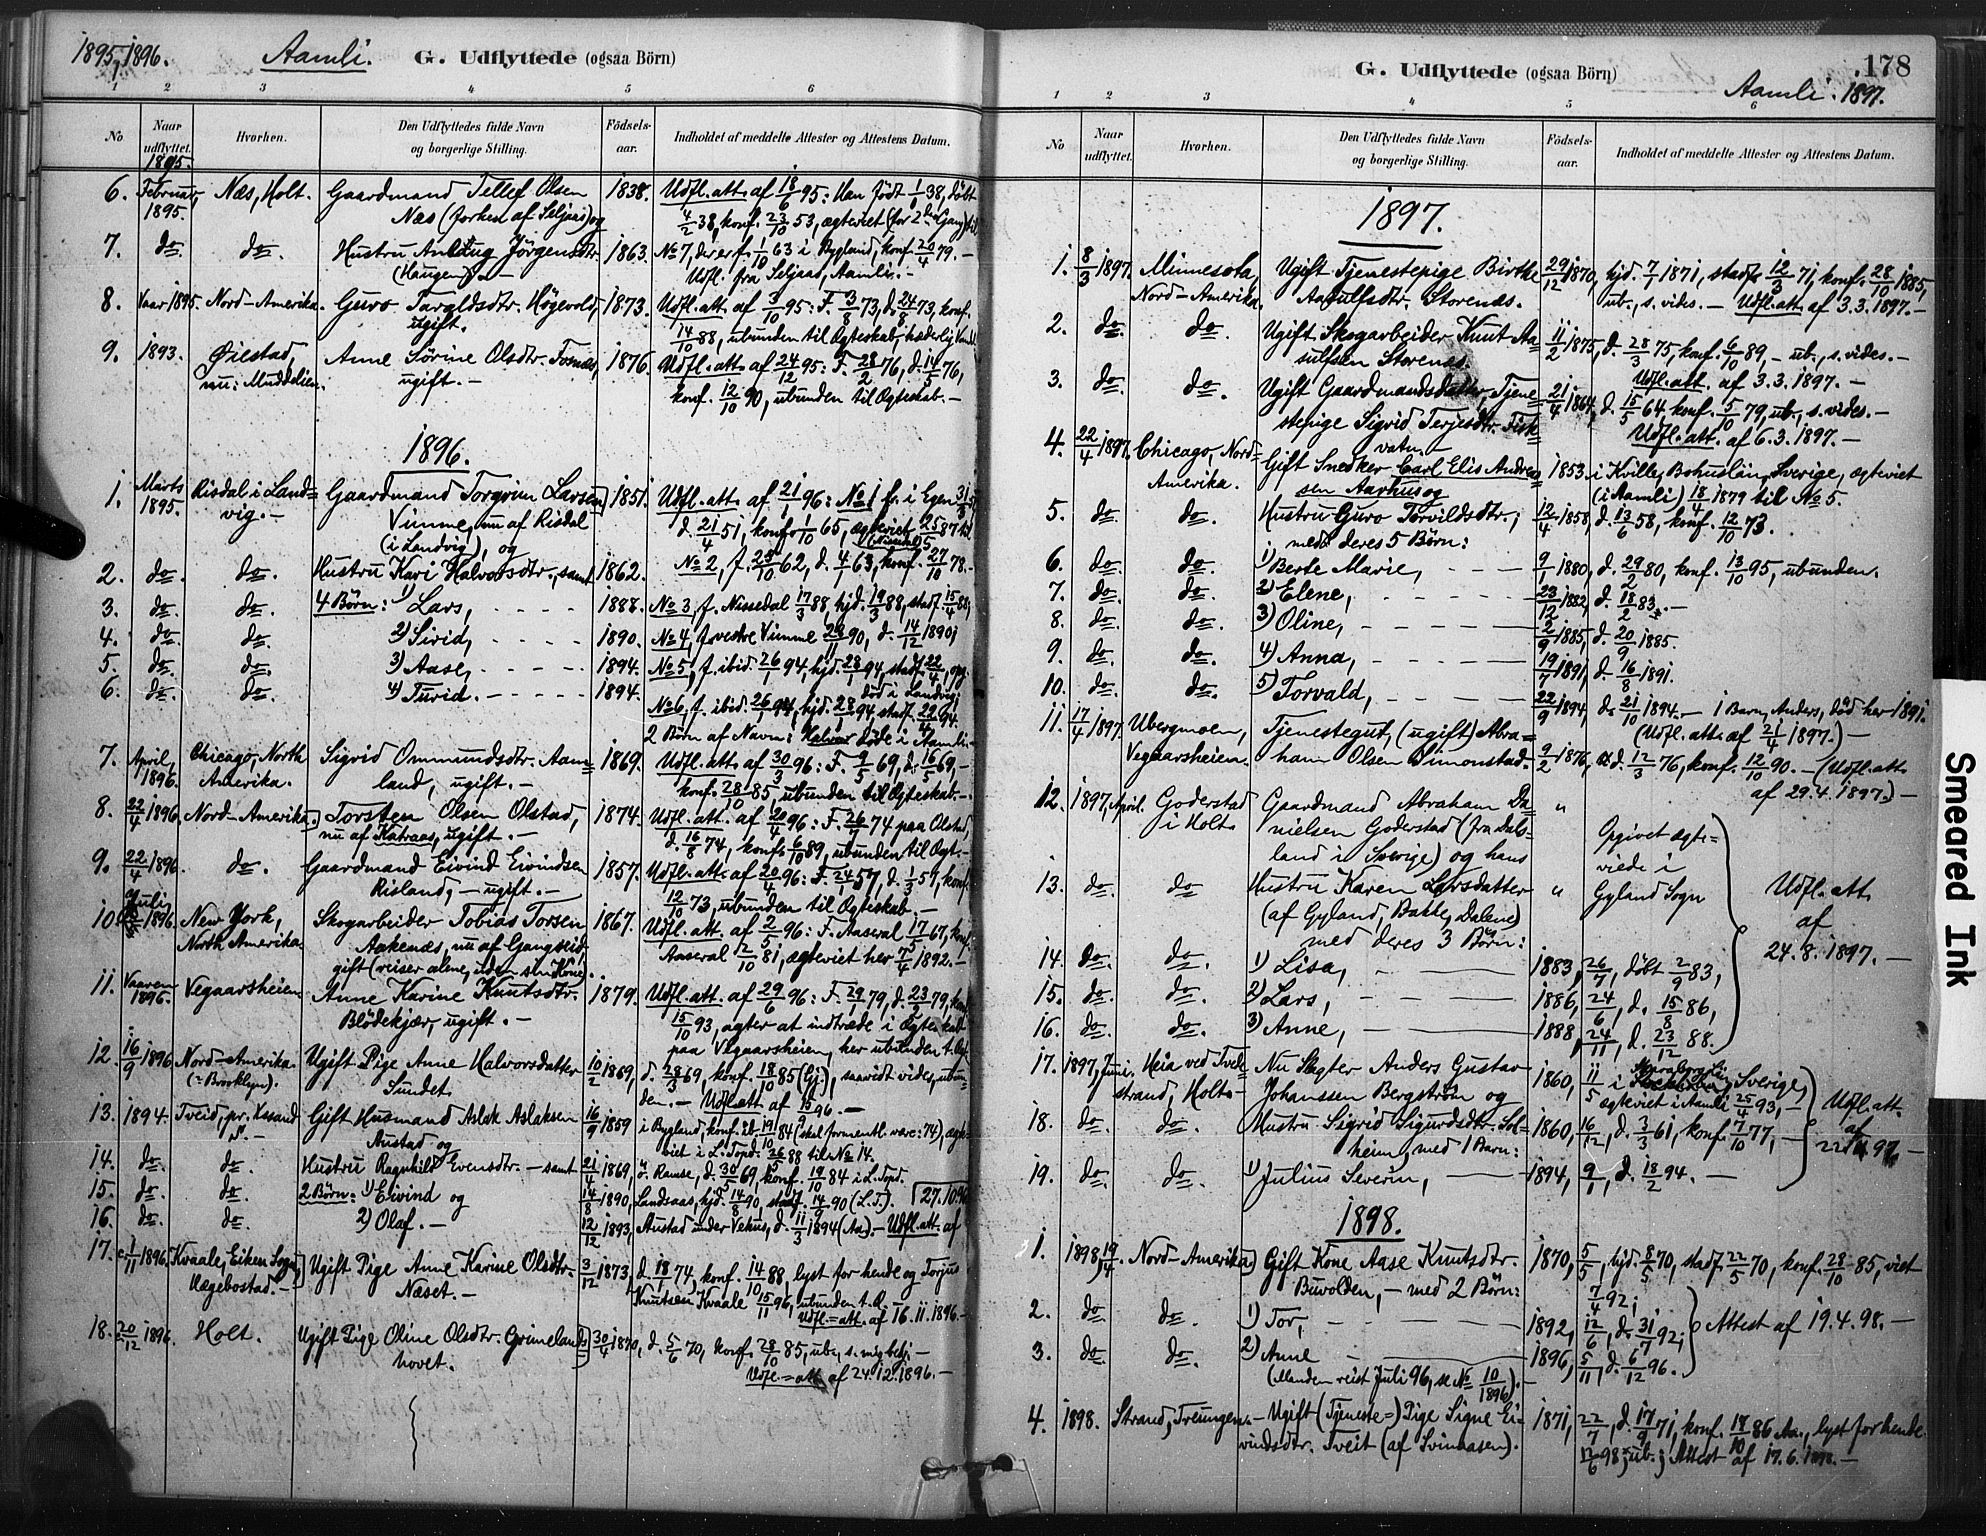 1895, 1896. Aamli. G. Udflyttede (ogsaa Börn)
1 2 3 4 5 6
No Naar udflyttet. Hvorhen. Den Udflyttedes fulde Navn og borgerlige Stilling. Födsels-aar. Indholdet af meddelte Attester og Attestens Datum.
1895
6. Februar, 1895. Næs, Holt. Gaardmand Tellef Olsen 1838. Udfl. att. af 18/6 95: Han født 1/1 38, døbt
Næs (forhen af Seljaas) og 4/2 38, konf. 23/10 53, ægteviet (for 2den Gang) til
7. do do. Hustru Anlaug Jørgensdtr. 1863. No 7, der er f. 1/10 63 i Bygland, konf. 20/4 79. —
(Haugen). — Udfl. fra Seljaas, Aamli. —
8. Vaar 1895. Nord-Amerika. Guro Targldsdtr. Högevold, 1873. Udfl. att. af 3/10 95: F. 3/8 73, d. 24/8 73, konf.
ugift. 14/10 88, ubunden til Ægteskab,
9. 1893. Øiestad, Anne Sørine Olsdtr. Fosnæs, 1876. Udfl. att. af 24/12 95: F. 28/2 76, d. 14/5 76,
nu: Muddelien. ugift. — konf. 12/10 90, ubunden til Ægteskab. —
1896.
1. Marts 1895. Risdal i Land= Gaardmand Torgrim Larsen 1851. Udfl. att. af 21/1 96: No 1 f. i Egen
vig. — Vimme, nu af Risdal d. 21/4 51, konf. 1/10 65, ægteviet
(i Landvig), og
2. do. do. Hustru Kari Halvorsdtr., samt 1862. No 2, f. 25/10 62, d. 4/1 63, konf. 27/10 78. —
3. do do. 4 Børn: 1) Lars, 1888. No 3, f. Nissedal 17/3 88, hjd. 19/3 88, stadf. 15/4 88,
4. do do. 2) Sivid, 1890. No 4, f. vestre Vimme 29/11 90, d. 14/12 1890,
5. do do. 3) Aase, 1894. No 5, f. ibid. 26/1 94, hjd. 28/1 94, stadf. 22/4, og
6. do do. 4) Turid. 1894. død i Landvig,
No 6, f. ibid. 26/1 94, hjd. 28/1 94, stadf. 22/4 94.
2 Børn af Navn: Halvor døde i Aamli. —
7. April, 1896. Chicago, North Sigrid Ommundsdtr. Aam= 1869. Udfl. att. af 30/3 96: F. 9/5 69, d. 16/5 69, —
Amerika. land, ugift. — konf. 28/10 85, ubunden til Ægteskab. —
8. 22/4 1896. Nord-Amerika. Torsten Olsen Olstad, 1874. Udfl. att. af 20/4 96: F. 26/7 74 paa Olstad,
nu af Katraas, ugift. — d. 16/8 74, konf. 6/10 89, ubunden til Ægt. —
9. 22/4 1896. do. Gaardmand Eivind Eivindsen 1857. Udfl. att. af 20/4 96: F. 24/1 57, d. 1/3 57, konf.
Risland, — ugift. — 12/10 73, ubunden til Ægteskab. —
10. Juli 1896. New York, Skogarbeider Tobias Torsen 1867. Udfl. att. af 2/5 96: F. Aaseral 17/5 67, konf.
North Amerika. Aakenæs, nu af Gangseid, Aaseral 2/10 81, ægteviet her 7/4 1892. —
gift (reiser alene, uden sin Kone).
11. Vaaren 1896. Vegaarsheien Anne Karine Knutsdtr. 1879. Udfl. att. af 29/6 96: F. 29/1 79, d. 23/2 79, konf.
Blödekjær, ugift. — 15/10 93, agter at indtræde i Ægteskab
paa Vegaarsheien, her ubunden t. Ægt.
12. 16/9 1896 Nord-Amerika Ugift Pige Anne Halvorsdatter 10/2 1869, d. 28/3 69, konf. 18/10 85 (Gj.), saavidt vides, ubun=
(: Brooklyn). Sundet. den. — Udfl. att. af 15/9 96. —
13. 1894. Tveid, pr. Kr.sand Gift Husmand Aslak Aslaksen 16/9 1859 i Bygland, konf. 19/10 84 (skal formentl. være: 74), ægte=
S. — Austad og viet i L. Topd. 26/5 88 til No 14.
14. do do. Hustru Ragnhild Evensdtr. — samt 21/4 1869, Ramse, d. 30/5 69, konf. 19/10 84 i L. Topd.
15. do do. 2 Børn: 1) Eivind og 14/8 1890, Landsaas, hjd. 14/8 90, stadf. 14/9 90 (L.T.). 27.10.96
16. do do. 2) Olaf. — 12/12 1893, Austad under Vehus, d. 11/3 1894 (Aa). — Udfl. att. af
17. 1/11 1896. Kvaale, Eiken Sogn, Ugift Pige Anne Karine Olsdtr. 3/12 1873, d. 18/1 74, konf. 14/10 88, lyst for hende og Torjus
Hægebostad. — Næset. — Knutsen Kvaale 15/11 96, ubunden t. Æ. —
Udfl.=att. af 16.11.1896. —
18. 20/12 1896. Holt. Ugift Pige Oline Olsdtr. Grimelands= 30/4 1870, d. 5/6 70, konf. 28/10 85, ub., s. mig bekj. —
hovet. Udfl.=att. af 24.12.1896. —
G. Udflyttede (ogsaa Börn) Aamli. 1897. 178
1 2 3 4 5 6
No Naar udflyttet. Hvorhen. Den Udflyttedes fulde Navn og borgerlige Stilling. Födsels-aar. Indholdet af meddelte Attester og Attestens Datum.
1897.
1. 8/3 1897. Minnesota, Ugift Tjenestepige Birthe 29/12 1870, hjd. 7/1 1871, stadf. 12/3 71, konf. 28/10 1885,
Nord-Amerika. Aasulfsdtr. Storenæs. ub., s. vides. — Udfl. att. af 3.3.1897. —
2. do. do. Ugift Skogarbeider Knut Aa= 11/2 1875, d. 28/3 75, konf. 6/10 89, — ub., s. vides. —
sulfsen Storenæs. Udfl. att. af 3.3.1897. —
3. do. do. Ugift Gaardmandsdatter, Tjene= 21/4 1864, d. 15/5 64, konf. 5/10 79, ub., s. vides. —
stepige Sigrid Terjesdtr. Fisk= Udfl. att. af 6.3.1897. —
vatn. —
4. 22/4 1897. Chicago, Nord= Gift Snedker Carl Elis Andrea= 1853. i Kville, Bohuslän, Sverige, ægteviet
Amerika. sen Aarhus og (i Aamli) 18/4 1879 til No 5.
5. do. do. Hustru Guro Torvildsdtr.; 12/4 1858, d. 13/6 58, konf. 12/10 73.
med deres 5 Børn:
6. do. do. 1) Berte Marie, 9/1 1880, d. 29/2 80, konf. 13/10 95, ubunden.
7. do. do. 2) Elene, 23/12 1882, d. 18/2 83. —
8. do. do. 3) Oline, 2/9 1885, d. 20/9 1885.
9. do. do. 4) Anna, 19/7 1891, d. 16/8 1891.
10. do. do. 5) Torvald, 22/9 1894, d. 21/10 1894. — 1 Barn, Anders, død her 1891.
(Udfl. att. af 21/4 1897.) —
11. 17/4 1897. Ubergmoen, Tjenestegut, (ugift) Abra=
Vegaarsheien. ham Olsen Simonstad. 9/2 1876, d. 12/3 76, konf. 12/10 90. — (Udfl. att.
af 29.4.1897.) —
12. 1897, April. Goderstad Gaardmand Abraham Da= "
i Holt. nielsen Goderstad (fra Dals= Opgivet ægte=
land i Sverige) og hans viede i
13. do do Hustru Karen Larsdatter " Gyland Sogn Udfl. att.
(af Gyland, Bakke, Dalene) af
med deres 3 Børn: 24.8.1897. —
14. do do. 1) Lisa, 1883, 26/7, døbt 2/9 83,
15. do do. 2) Lars, 1886, 24/6, d. 15/8 86,
16. do. do. 3) Anne, 1888, 24/11, d. 23/12 88.
17. 1897, Juni. Heia ved Tvede= Nu Slagter Anders Gustav 1860, 11/5 i Sverige,
strand, Holt. Johanssen Bergström og ægteviet i Aamli 25/4 93, — Udfl. att.
18. do. do. Hustru Sigrid Sigurdsdtr. Sol= 1860, 16/12, d. 3/3 61, konf. 7/10 77, — af
heim, med 1 Barn: 97. —
19. do. do. 1) Julius Severin, — 1894, 9/1, d. 18/2 94. —
1898.
1. 1898, 19/4. Nord-Amerika. Gift Kone Aase Knutsdtr. 1870, 5/5, hjd. 8/5 70, stadf. 22/5 70, konf. 28/10 85, viet
Buvolden, — med 2 Børn: 7/4 92;
2. do do. 1) Tor, 1892, 12/6, d. 31/7 92; Attest af 19.4.98. —
3. do do. 2) Anne 1896, 5/11, d. 6/12 96.
(Manden reist Juli 96, se No 10/1896). —
4. 1898. Strand, Treungen. — Ugift (Tjeneste=) Pige Signe Ei= 1871, 22/7, d. 17/9 71, konf. 17/10 86 Aa., lyst for hende
vindsdtr. Tveit (af Svinaasen). 12/6 98; ub.; Attest af 17.6.1898. —
Smeared Ink